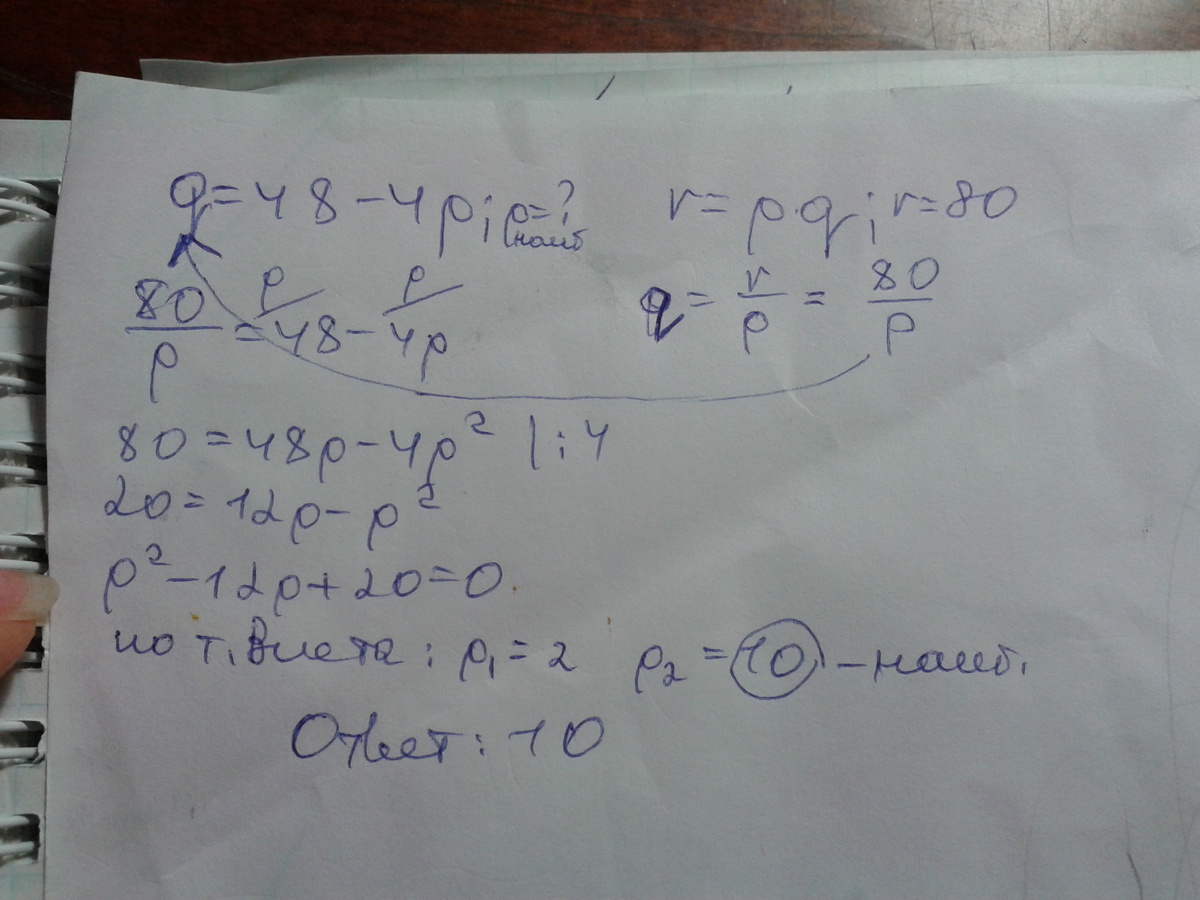 q = 48 - 4p; p = ? наиб
r = p·q; r = 80
80/p = 48 - 4p
p p
q = r/p = 80/p
80 = 48p - 4p² | : 4
20 = 12p - p²
p² - 12p + 20 = 0.
по т. Виета: p₁ = 2 p₂ = 10 - наиб.
Ответ: 10